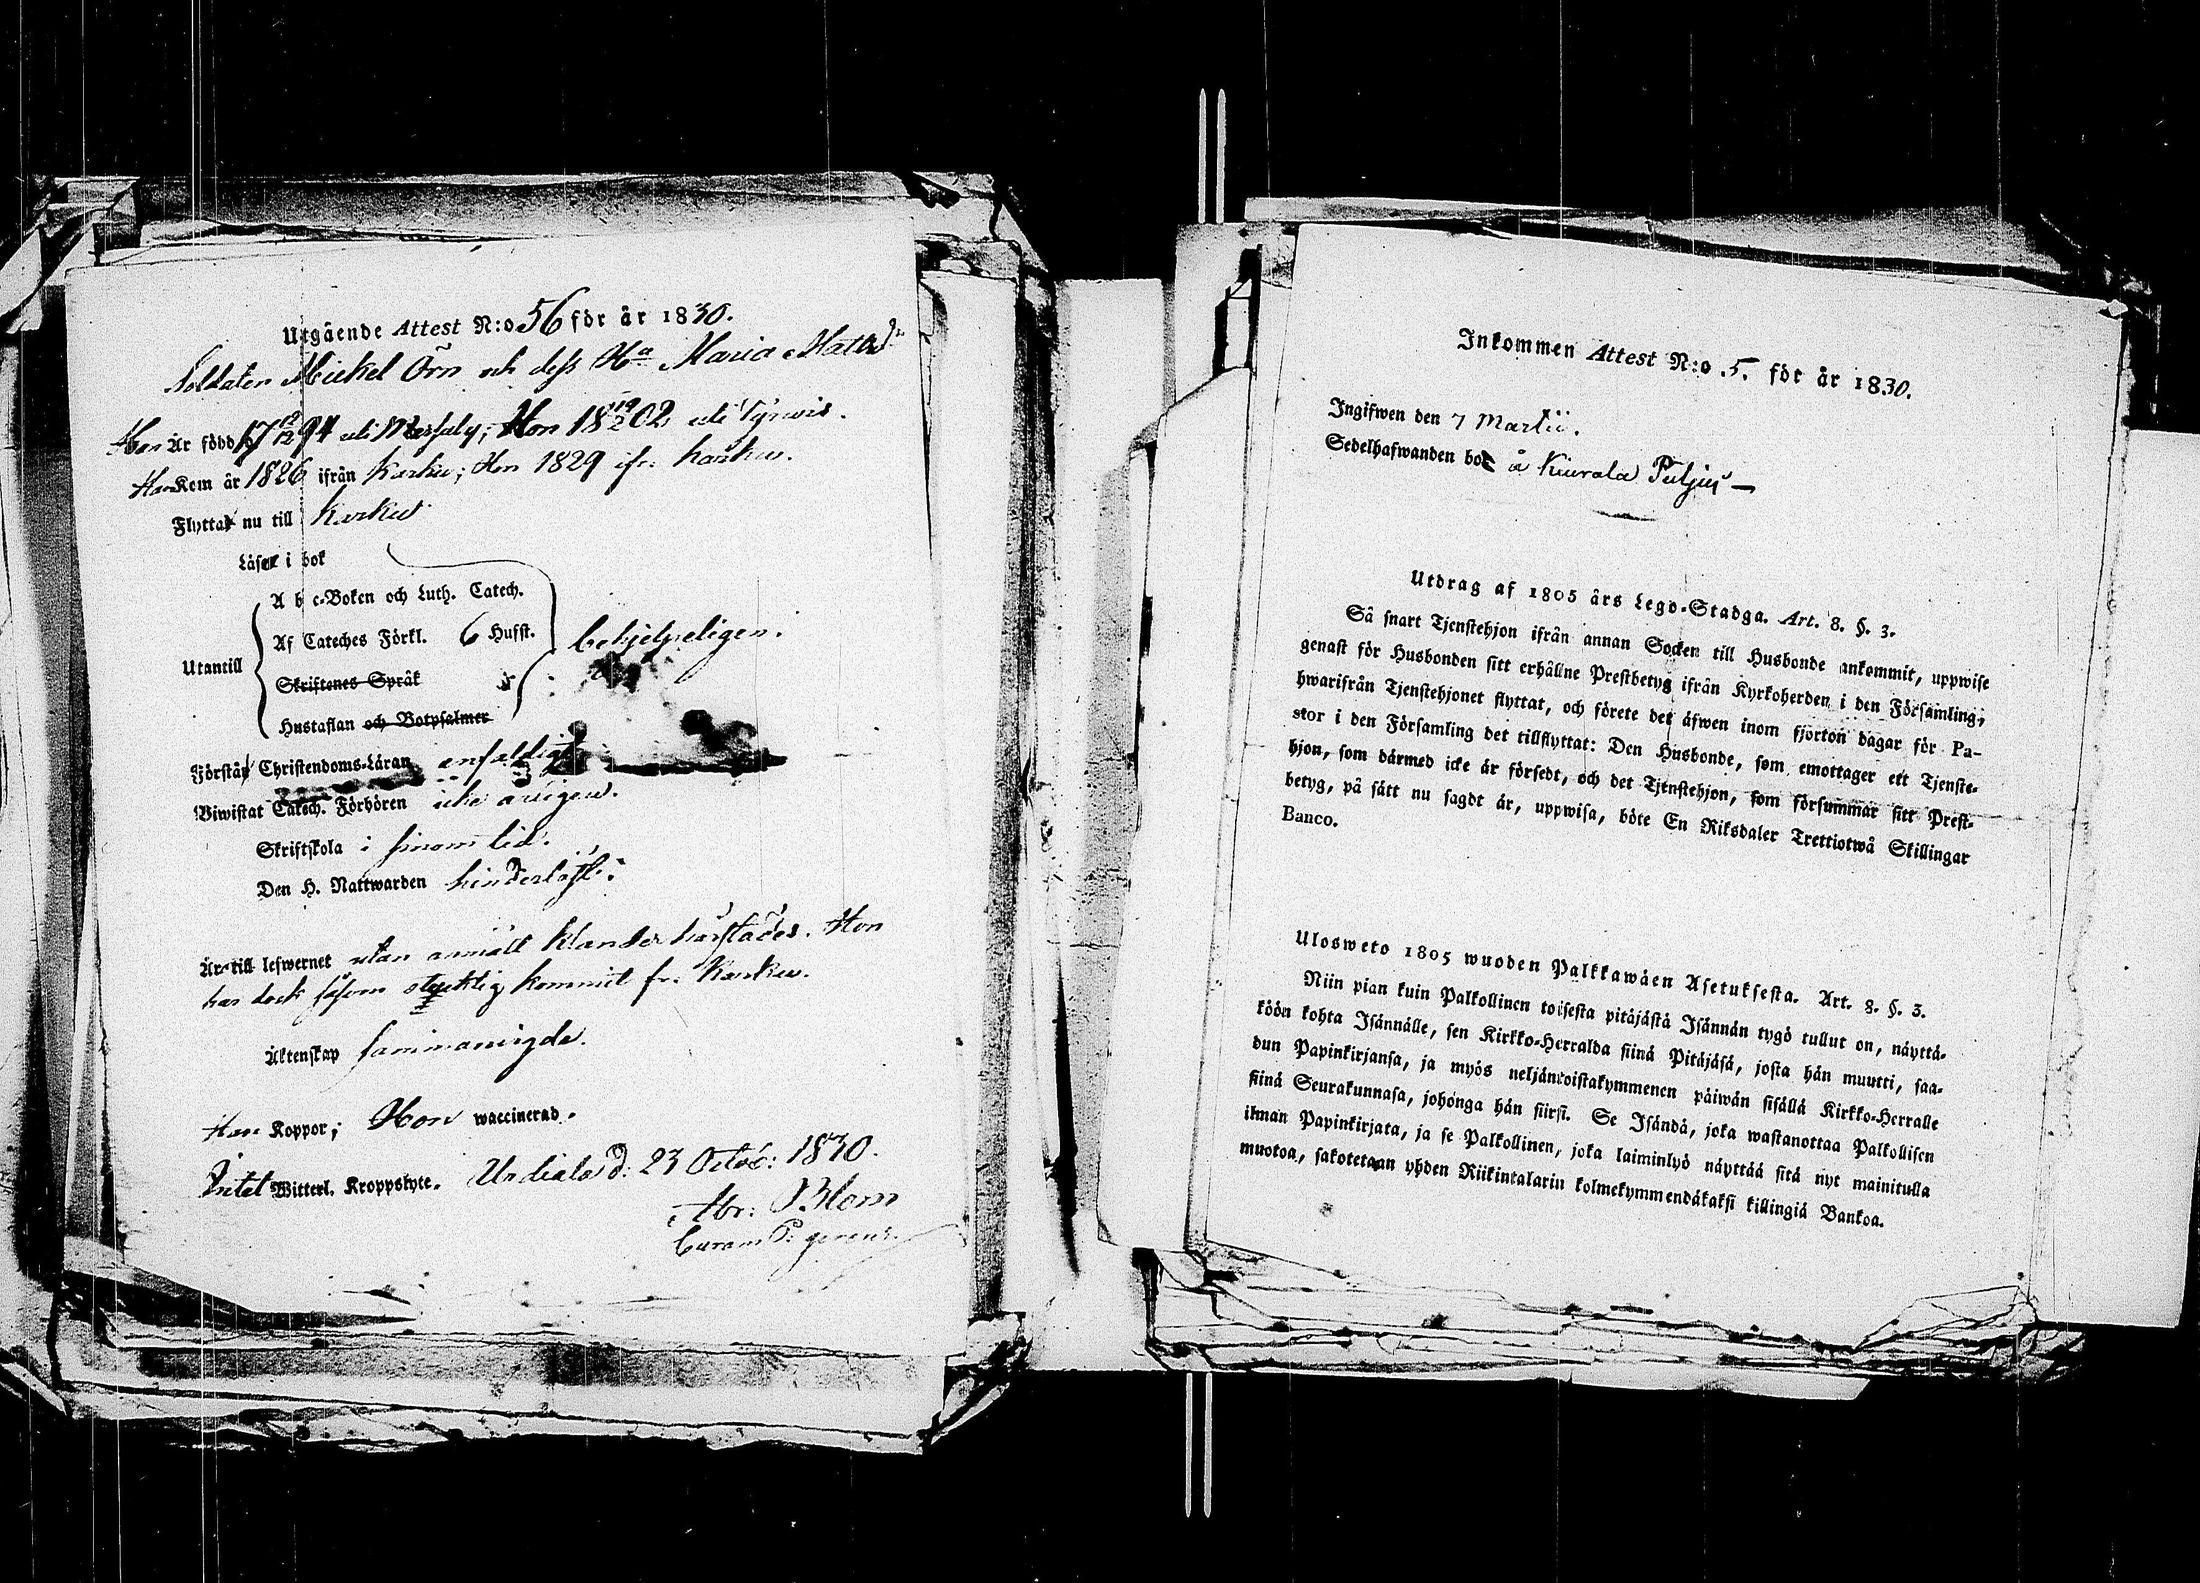 Utgående Attest N:o 56 för år 1830.
Soldaten Mickel Örn och dess Ha Maria Matts dr
Han Är född 17 94 uti ; Hon 18 02 uti Tyrwis.
Han Kom år 1826 ifrån Karku; Hon 1829 ifr. Karku.
Flytta nu till Karku
Läsa i bok
A b c-Boken och Luth. Catech.
Af Cateches Förkl. 6 Hufst.
behjelpeligen.
Utantill
Skriftenes Språk
Hustaflan och Botpsalmer
Förstår Christendoms-Läran enfaldigt
Biwistat Catech. Förhören icke
Skriftskola i sinom tid.
Den H. Nattwarden hinderlöst:
Är till lefwernet utan anmält klander härstädes. Hon
har dock såsom kommit fr. Karku.
Äktenskap sammanwigde.
Han Koppor; Hon waccinerad.
Intet Witterl. Kroppslyte. Urdiala d: 23 Octob: 1830.
Abr: Blom
Curam P. gerens.
Inkommen Attest N:o 5. för år 1830.
Ingifwen den 7 Martii.
Sedelhafwanden bor å Kiurala
Utdrag af 1805 års Lego-Stadga. Art. 8. §. 3.
Så snart Tjenstehjon ifrån annan Socken till Husbonde ankommit, uppwise
genast för Husbonden sitt erhållne Prestbetyg ifrån Kyrkoherden i den Församling,
hwarifrån Tjenstehjonet flyttat, och förete det äfwen inom fjorton dagar för Pa-
stor i den Församling det tillflyttat: Den Husbonde, som emottager ett Tjenste-
hjon, som därmed icke är försedt, och det Tjenstehjon, som försummar sitt Prest-
betyg, på sätt nu sagdt är, uppwisa, böte En Riksdaler Trettiotwå Skillingar
Banco.
Ulosweto 1805 wuoden Palkkawäen Asetuksesta. Art. 8. §. 3.
Niin pian kuin Palkollinen toisesta pitäjästä Isännän tygö tullut on, näyttä-
köön kohta Isännälle, sen Kirkko-Herralda siinä Pitäjäsä, josta hän muutti, saa-
dun Papinkirjansa, ja myös neljäntoistakymmenen päiwän sisällä Kirkko-Herralle
siinä Seurakunnasa, johonga hän siirsi. Se Isändä, joka wastanottaa Palkollisen
ilman Papinkirjata, ja se Palkollinen, joka laiminlyö näyttää sitä nyt mainitulla
muotoa, sakotetaan yhden Riikintalarin kolmekymmendäkaksi killingiä Bankoa.